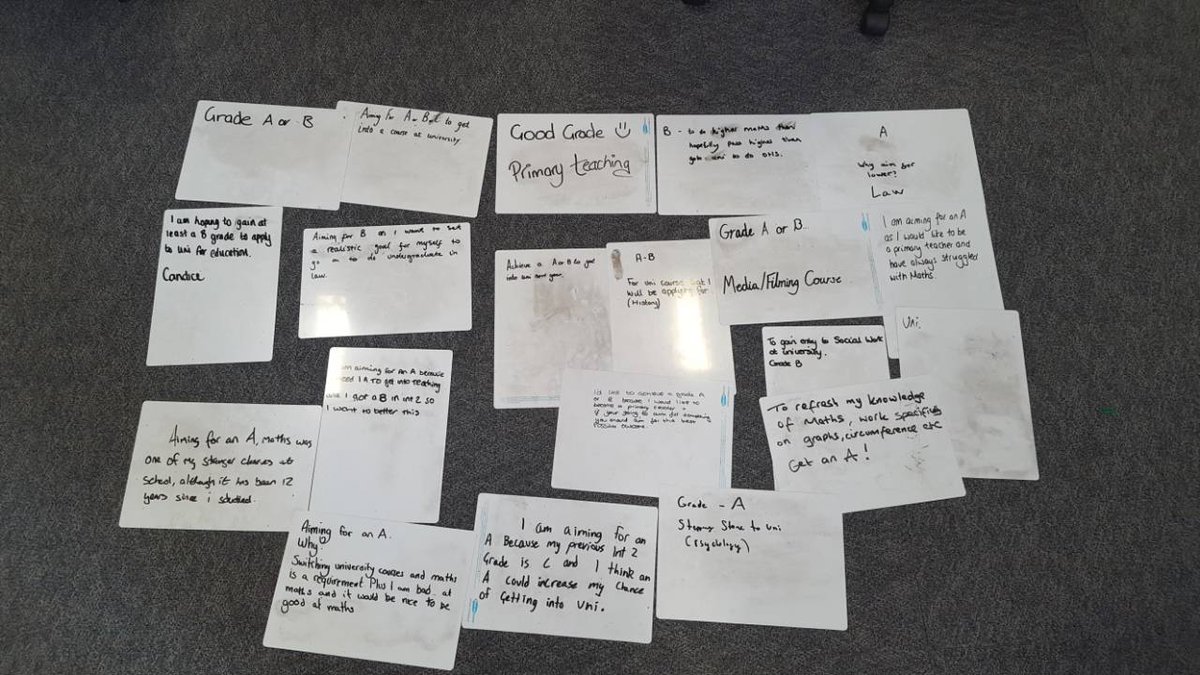 Grade A or B
Aiming for A or B to get
into a course at university
Good Grade
Primary teaching
B - to do higher maths then
hopefully pass higher then
goto uni to do
A
Why aim for
lower?
Law
I am hoping to gain at
least a B grade to apply
to uni for education.
Candice
Aiming for B as I want to set
a realistic goal for myself to
go on to do undergraduate in
law.
Achieve a A or B to get
into uni next year.
A-B
For uni course that I
will be applying for
(History)
Grade A or B
Media/Filming Course
I am aiming for an A
as I would like to be
a primary teacher and
have always struggled
with Maths.
To gain entry to Social Work
at university.
Grade B
Uni.
am aiming for an A because
need 1 A to get into teaching
I got a B in int 2 so
I want to better this
I'd like to achieve a grade A
or B because I would like to
become a primary teacher &
if your going to aim for something
you should aim for the best
possible outcome.
To refresh my knowledge
of Maths, work specifics
on graphs, circumference etc
Get an A!
Aiming for an A, Maths was
one of my stronger classes at
school, although it has been 12
years since i studied.
Aiming for an A.
Why?
Switching university courses and maths
is a requirement Plus I am bad at
maths and it would be nice to be
good at maths
I am aiming for an
A Because my previous Int 2
Grade is C and I think an
A could increase my chance
of Getting into Uni.
Grade - A
Stepping Stone to Uni
(Psychology)